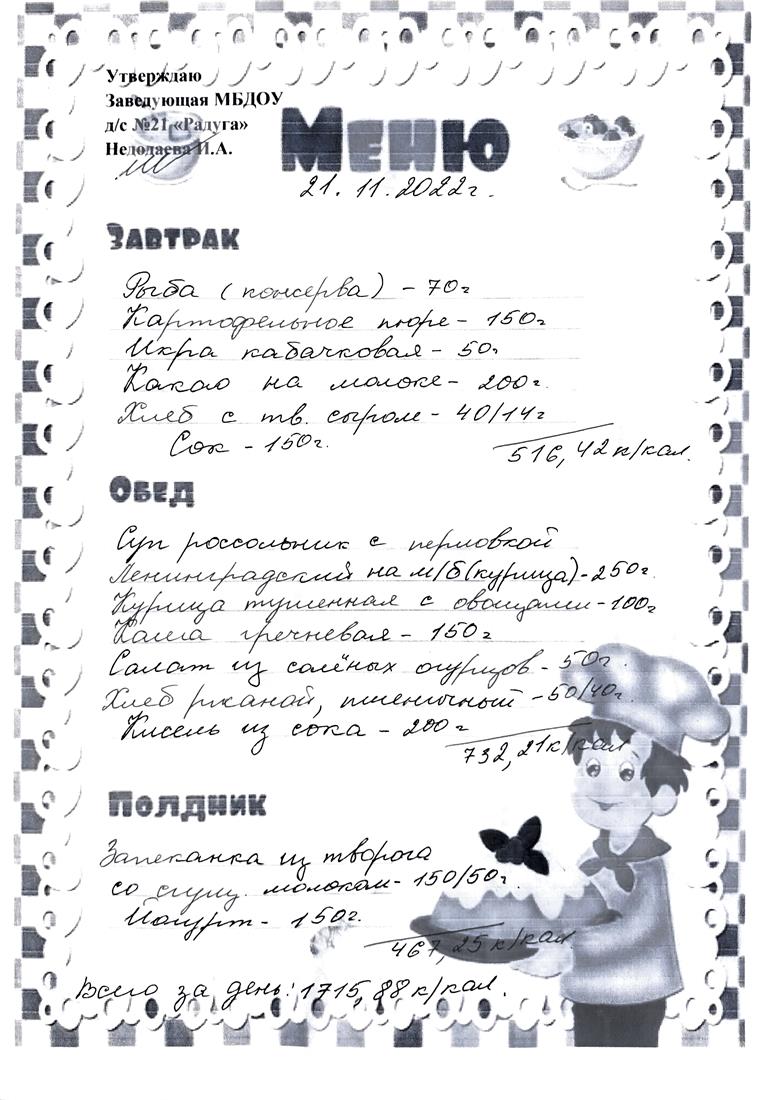 Утверждаю
Заведующая МБДОУ
д/с №21 «Радуга»
Недодаева И.А.
Меню
21.11.2022г.
Завтрак
Рыба (консерва) - 70г
Картофельное пюре - 150г
Икра кабачковая - 50г
Какао на молоке - 200г.
Хлеб с тв. сыром - 40/14г
Сок - 150г.
516,42 к/кал.
Обед
Суп россольник с перловкой
Ленинградский на м/б (курица) - 250г.
Курица тушенная с овощами - 100г
Каша гречневая - 150г
Салат из солёных огурцов - 50г.
Хлеб ржаной, пшеничный - 50/40г.
Кисель из сока - 200г
732,21 к/кал
Полдник
Запеканка из творога
со сгущ. молоком - 150/50г.
Йогурт - 150г.
467,25 к/кал
Всего за день: 1715,88 к/кал.